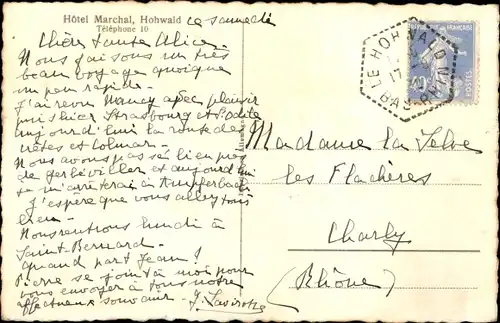 Hôtel Marchal, Hohwald
Téléphone 10
ce samedi
Chère tante Alice,
Nous faisons un très
beau voyage quoique
un peu rapide.
J'ai revu Nancy avec plaisir
puis hier Strasbourg et
aujourd'hui la route des
crêtes et Colmar.
Nous avons passé bien près
de gerbéviller et aujourd'hui
je m'arrêterai à
J'espère que vous allez tous
bien.
Nous rentrons lundi à
Saint-Bernard.
quand part Jean?
Pierre se joint à moi pour
vous envoyer à tous notre
affectueux souvenir. J. Lavirotte
LE HOHWALD
17
BAS-RHIN
40c
POSTES
Madame la Selve
les Flachères
Charly
(Rhône)